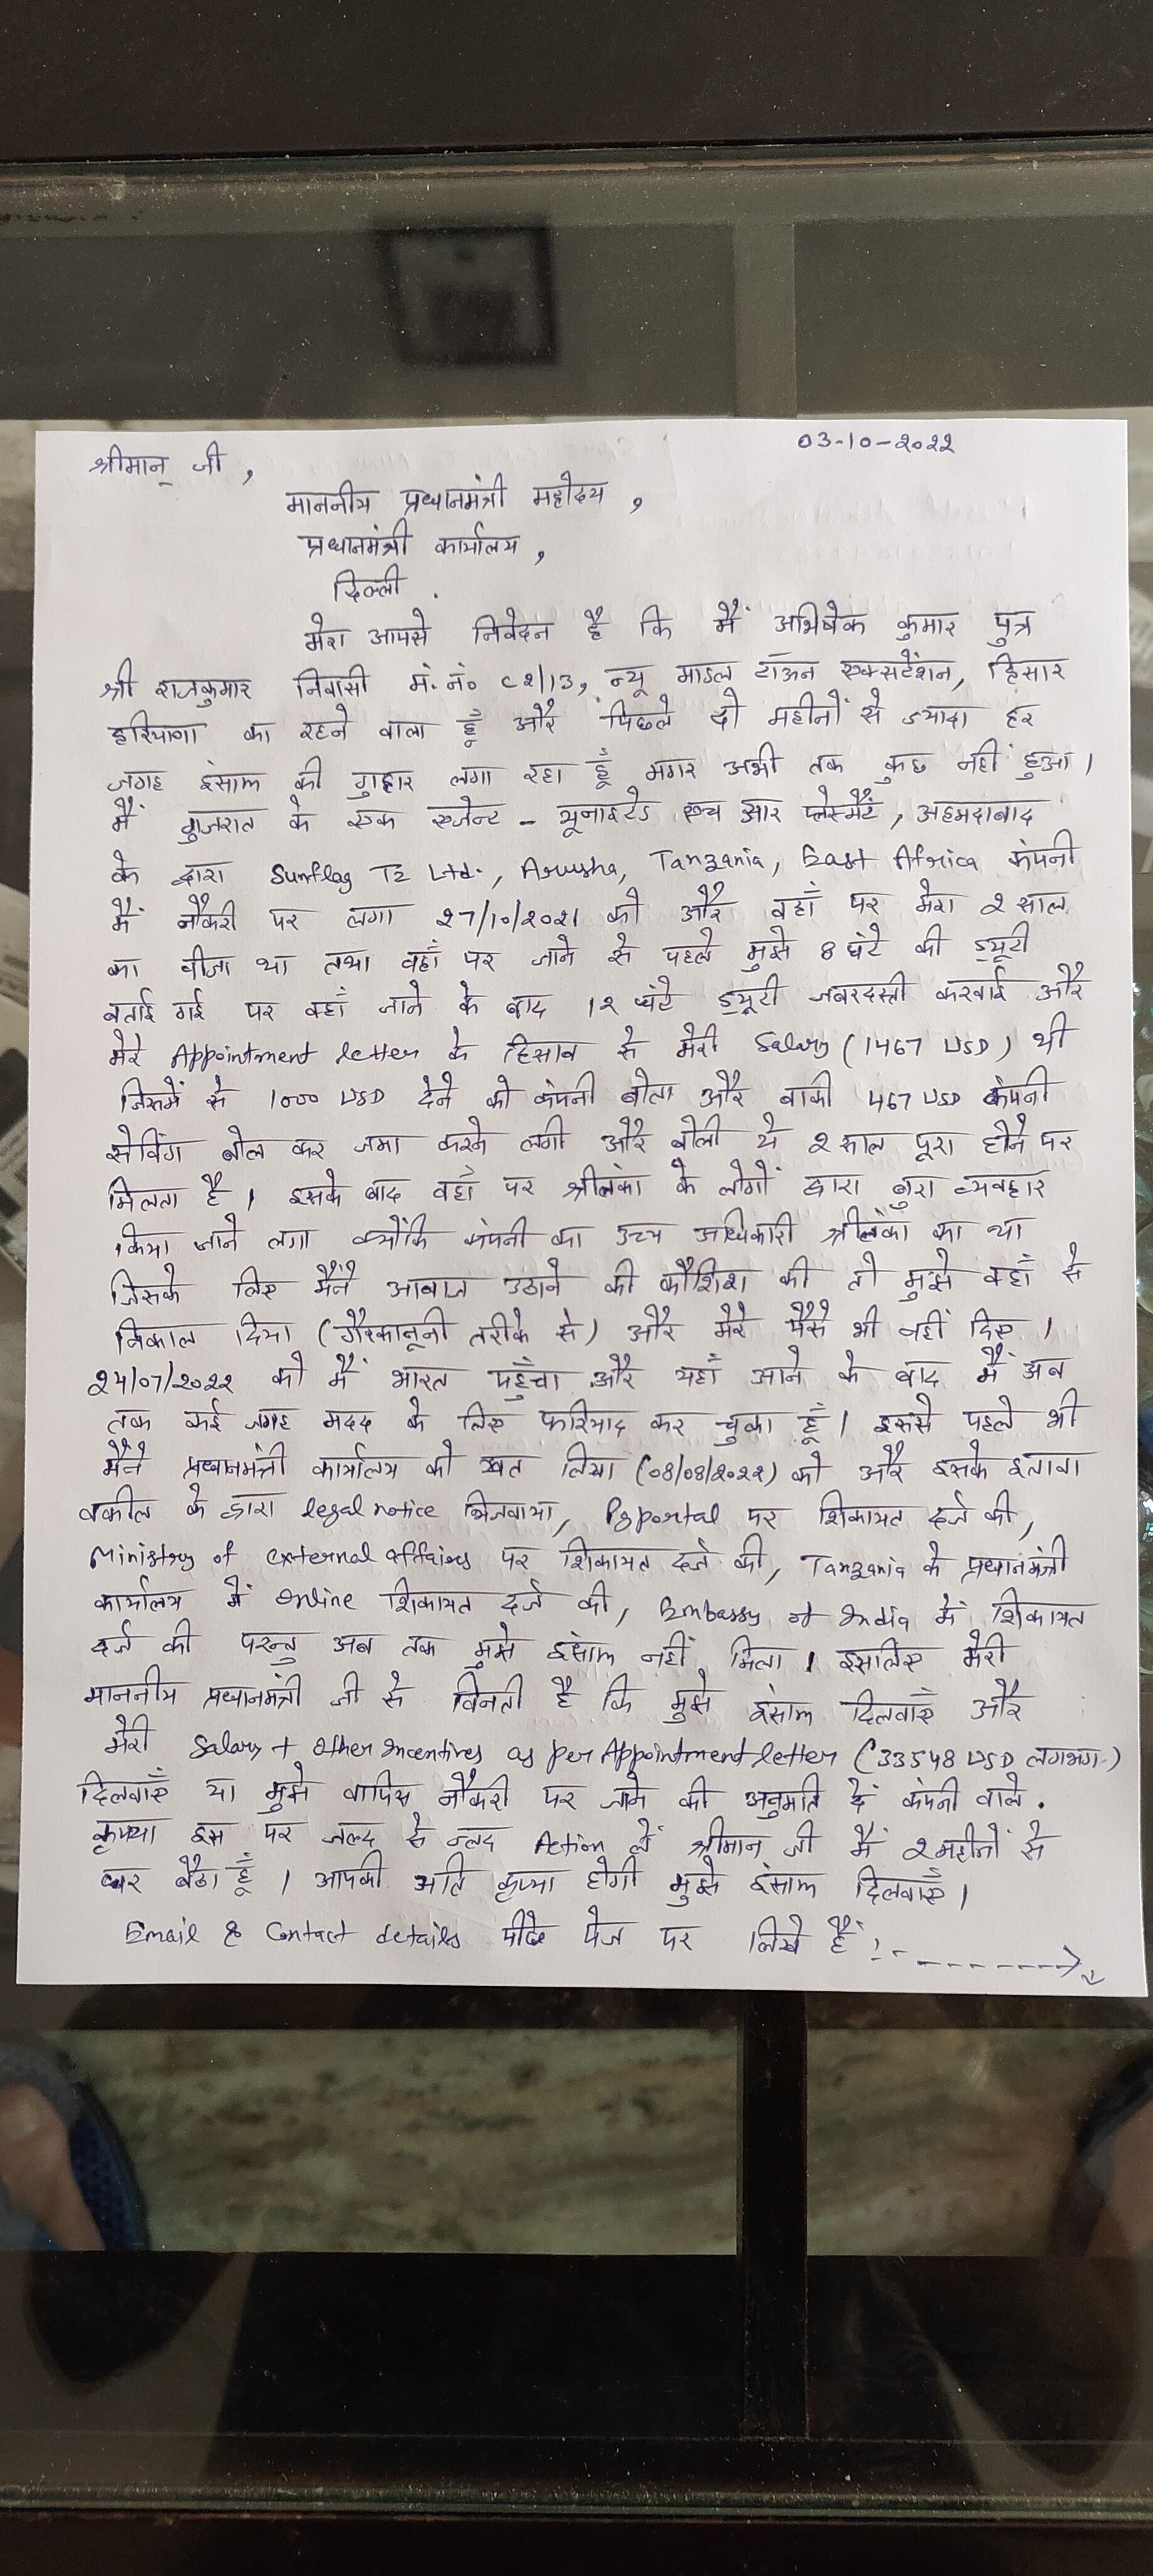 03-10-2022
श्रीमान् जी,
माननीय प्रधानमंत्री महोदय,
प्रधानमंत्री कार्यालय,
दिल्ली.
मेरा आपसे निवेदन है कि मैं अभिषेक कुमार पुत्र
श्री राजकुमार निवासी मं. नं० C2/13, न्यू माडल टाऊन एक्सटेंशन, हिसार
हरियाणा का रहने वाला हूँ और पिछले दो महीनों से ज्यादा हर
जगह इंसाफ की गुहार लगा रहा हूँ मगर अभी तक कुछ नहीं हुआ।
मैं गुजरात के एक एजेन्ट - यूनाइटेड एच आर प्लेस्मैंट, अहमदाबाद
के द्वारा Sunflag TZ Ltd., Arusha, Tanzania, East Africa कंपनी
में नौकरी पर लगा 27/10/2021 को और वहाँ पर मेरा 2 साल
का वीजा था तथा वहाँ पर जाने से पहले मुझे 8 घंटे की ड्यूटी
बताई गई पर वहाँ जाने के बाद 12 घंटे ड्यूटी जबरदस्ती करवाई और
मेरे Appointment letter के हिसाब से मेरी Salary (1467 USD) थी
जिसमें से 1000 USD देने को कंपनी बोला और बाकी 467 USD कंपनी
सेविंग बोल कर जमा करने लगी और बोली ये 2 साल पूरा होने पर
मिलता है। इसके बाद वहाँ पर श्रीलंका के लोगों द्वारा बुरा व्यवहार
किया जाने लगा क्योंकि कंपनी का उच्च अधिकारी श्रीलंका का था
जिसके लिए मैंने आवाज उठाने की कौशिश की तो मुझे वहाँ से
निकाल दिया (गैरकानूनी तरीके से) और मेरे पैसे भी नहीं दिए।
24/07/2022 को मैं भारत पहुँचा और यहाँ आने के बाद मैं अब
तक कई जगह मदद के लिए फरियाद कर चुका हूँ। इससे पहले भी
मैंने प्रधानमंत्री कार्यालय को खत लिखा (08/08/2022) को और इसके इलावा
वकील के द्वारा legal notice भिजवाया, Pgportal पर शिकायत दर्ज की,
Ministry of external affairs पर शिकायत दर्ज की, Tanzania के प्रधानमंत्री
कार्यालय में online शिकायत दर्ज की, Embassy of India में शिकायत
दर्ज की परन्तु अब तक मुझे इंसाफ नहीं मिला। इसलिए मेरी
माननीय प्रधानमंत्री जी से विनती है कि मुझे इंसाफ दिलवाएँ और
मेरी Salary + other incentives as per Appointment letter (33548 USD लगभग)
दिलवाएँ या मुझे वापिस नौकरी पर जाने की अनुमति दें कंपनी वाले.
कृप्या इस पर जल्द से जल्द Action लें श्रीमान जी मैं 2 महीनों से
घर बैठा हूँ। आपकी अति कृप्या होगी मुझे इंसाफ दिलवाएँ।
Email & Contact details पीछे पेज पर लिखे हैं:-